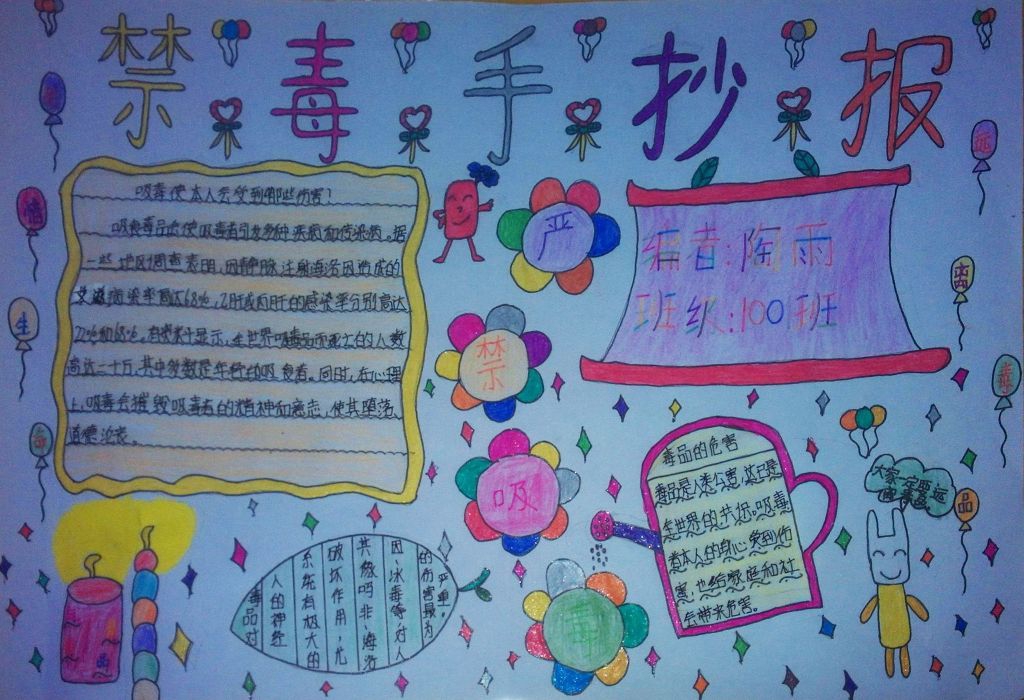 禁毒手抄报
吸毒使本人会受到那些伤害?
吸食毒品会使吸毒者引发多种疾病和传染病。据
一些地区调查表明,因静脉注射海洛因造成的
艾滋病染率高达68%,乙肝或丙肝的感染率分别高达
22%和68%。有数来计显示,在世界吸毒品而死亡的人数
高达二十万,其中多数是年轻的吸食者。同时,在心理
上,吸毒会摧毁吸毒者的精神和意志,使其堕落、
道德沦丧。
严
禁
吸
毒
编者:陶雨
班级:100班
毒品的危害
毒品是人类公害,这已是
全世界的共识。吸毒
者本人的身心受到伤
害,也给家庭和社
会带来危害。
大家一定要远
离毒品。
毒品对
人的神经
系统有极大的
破坏作用,尤
其像吗非、海洛
因、冰毒等对人
的伤害最为
严重。
珍
惜
生
命
远
离
毒
品